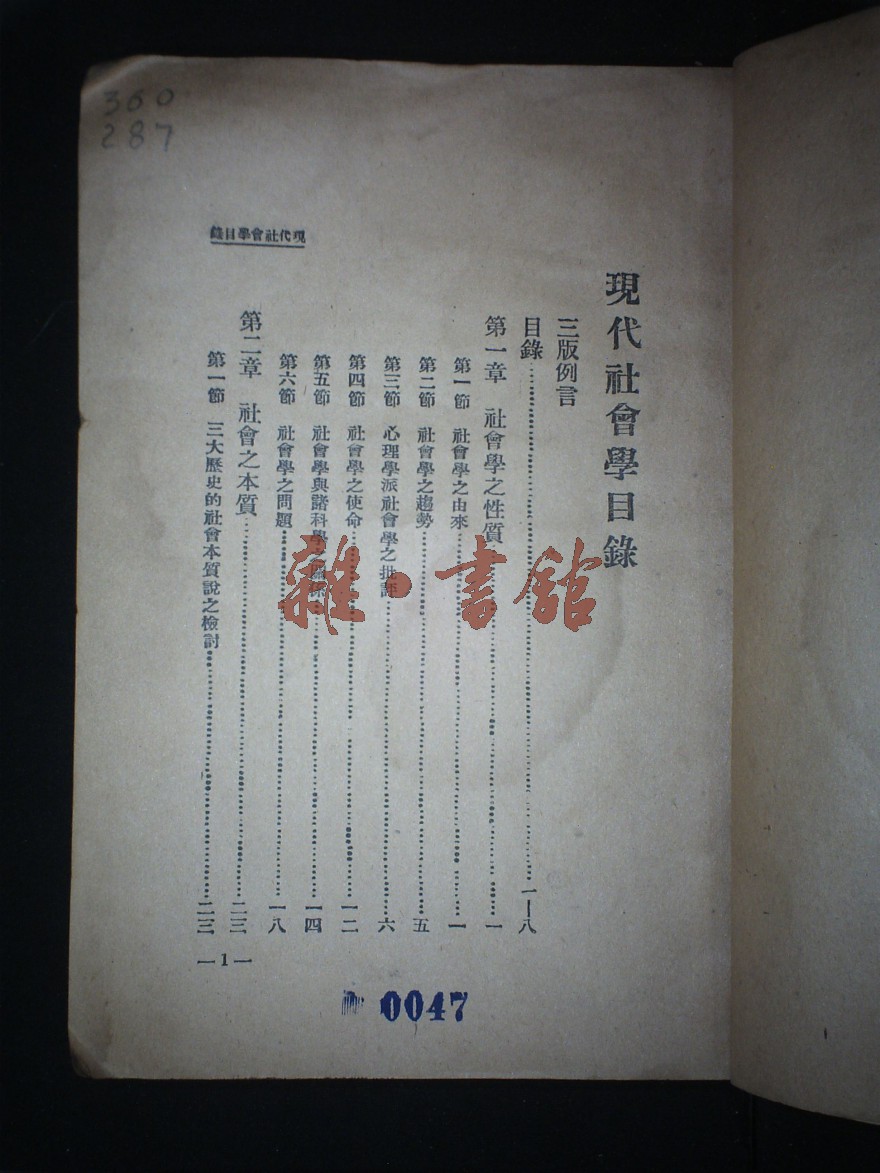 360
287
現代社會學目錄
現代社會學目錄
三版例言
目錄……一—八
第一章 社會學之性質……一
第一節 社會學之由來……一
第二節 社會學之趨勢……五
第三節 心理學派社會學之批評……六
第四節 社會學之使命……一二
第五節 社會學與諸科學之關係……一四
第六節 社會學之問題……一八
第二章 社會之本質……二三
第一節 三大歷史的社會本質說之檢討……二三
—1—
0047
雜·書館